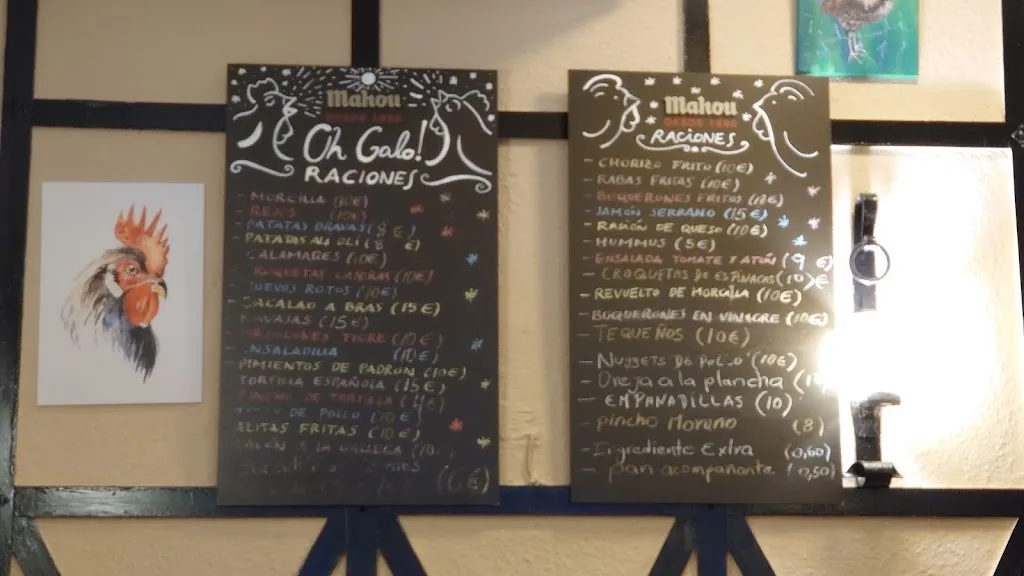 Mahou
DESDE 1890
Oh Galo!
RACIONES
- MORCILLA (10€)
- REJOS (10€)
- PATATAS BRAVAS (8€)
- PATATAS ALI OLI (8€)
CALAMARES (10€)
(10€)
HUEVOS ROTOS (10€)
- BACALAO A BRAS (15€)
- NAVAJAS (15€)
TIGRE (10€)
- ENSALADILLA (10€)
PIMIENTOS DE PADRÓN (10€)
TORTILLA ESPAÑOLA (15€)
PINCHO DE TORTILLA (4€)
DE POLLO (10€)
ALITAS FRITAS (10€)
A LA
Mahou
DESDE 1890
RACIONES
- CHORIZO FRITO (10€)
- RABAS FRITAS (10€)
- BUQUERONES FRITOS (10€)
- JAMÓN SERRANO (15€)
- RACIÓN DE QUESO (10€)
- HUMMUS (5€)
- ENSALADA TOMATE Y ATÚN (9€)
- CROQUETAS DE ESPINACAS (10)€
- REVUELTO DE MORCILLA (10€)
- BUQUERONES EN VINAGRE (10€)
- TEQUEÑOS (10€)
- Nuggets DE POLLO (10€)
- Oreja a la plancha
- EMPANADILLAS (10)
- pincho Moruno (8)
- Ingrediente Extra (0,60)
- pan acompañante (0,50)